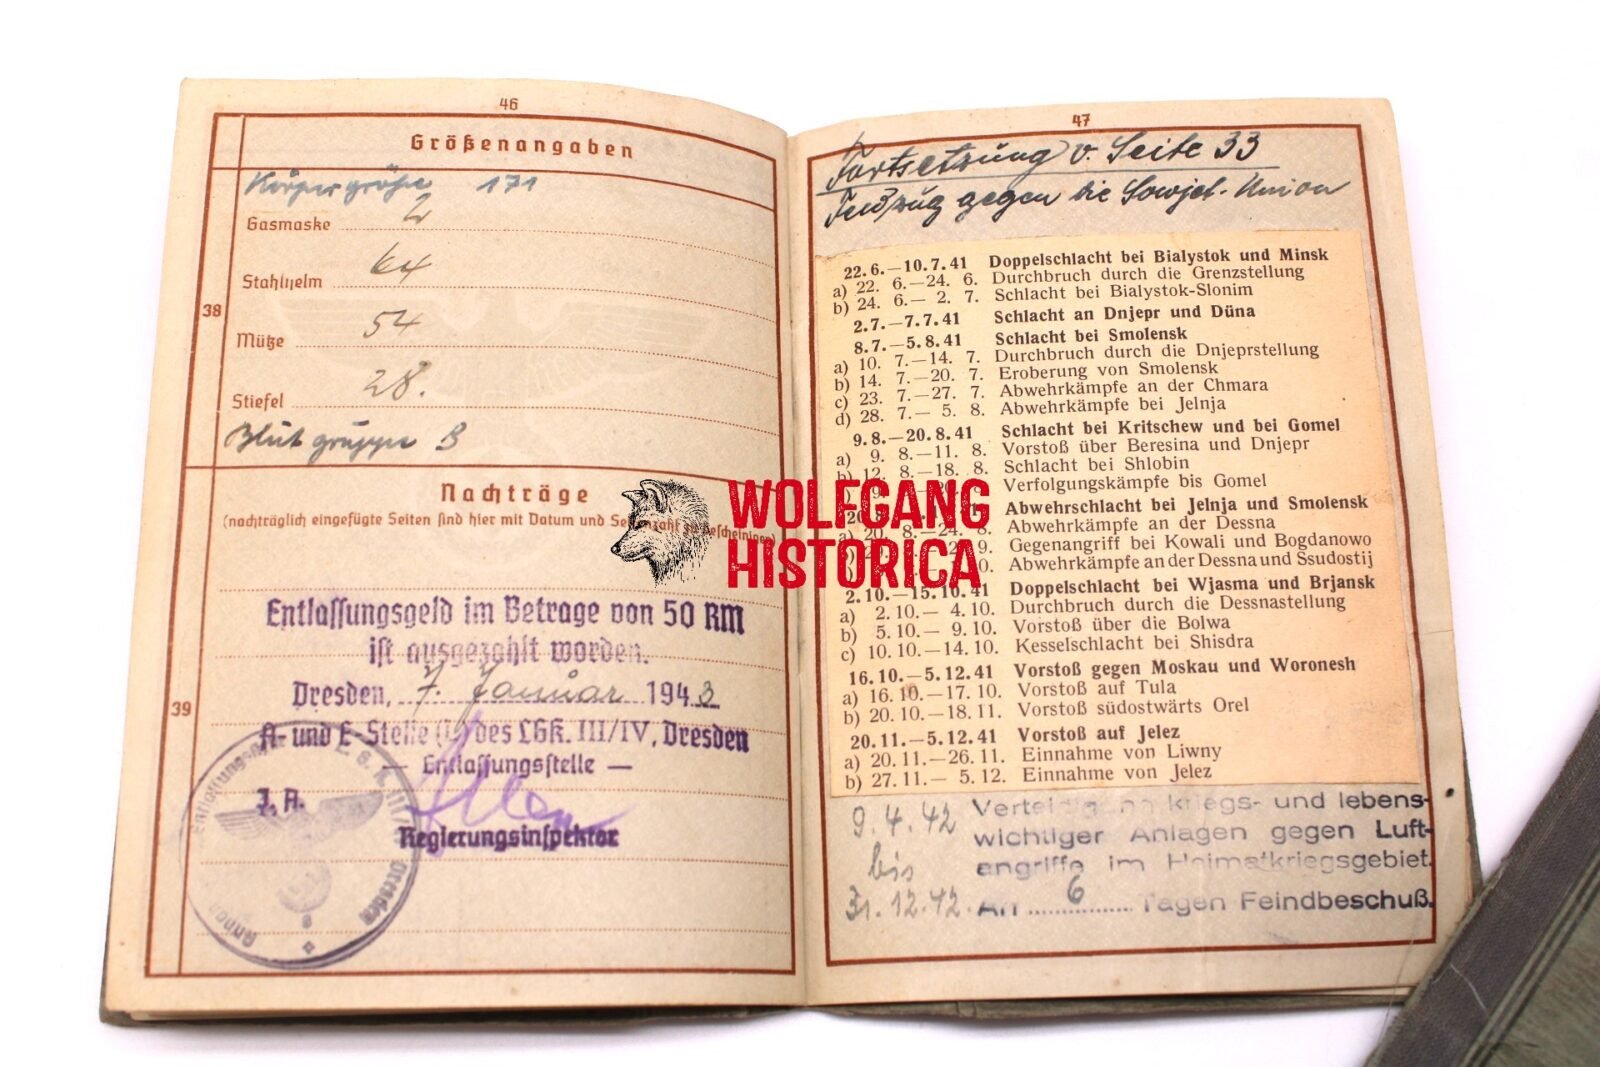 46
Größenangaben
Körpergröße 171
Gasmaske 2
Stahlhelm 64
38
Mütze 54
Stiefel 28.
Blutgruppe B
Nachträge
(nachträglich eingefügte Seiten sind hier mit Datum und Seitenzahl zu bescheinigen)
Entlassungsgeld im Betrage von 50 RM
ist ausgezahlt worden.
Dresden, 7. Januar 1943
39
A- und E-Stelle (L) des LGK. III/IV, Dresden
— Entlassungsstelle —
J. A.
Regierungsinspektor
47
Fortsetzung v. Seite 33
Feldzug gegen die Sowjet-Union
22.6.—10.7.41 Doppelschlacht bei Bialystok und Minsk
a) 22. 6.—24. 6. Durchbruch durch die Grenzstellung
b) 24. 6.— 2. 7. Schlacht bei Bialystok-Slonim
2.7.—7.7.41 Schlacht an Dnjepr und Düna
8.7.—5.8.41 Schlacht bei Smolensk
a) 10. 7.—14. 7. Durchbruch durch die Dnjeprstellung
b) 14. 7.—20. 7. Eroberung von Smolensk
c) 23. 7.—27. 7. Abwehrkämpfe an der Chmara
d) 28. 7.— 5. 8. Abwehrkämpfe bei Jelnja
9.8.—20.8.41 Schlacht bei Kritschew und bei Gomel
a) 9. 8.—11. 8. Vorstoß über Beresina und Dnjepr
b) 12. 8.—18. 8. Schlacht bei Shlobin
Verfolgungskämpfe bis Gomel
Abwehrschlacht bei Jelnja und Smolensk
a) 20. 8.—24. 8. Abwehrkämpfe an der Dessna
9. Gegenangriff bei Kowali und Bogdanowo
Abwehrkämpfe an der Dessna und Ssudostij
2.10.—15.10.41 Doppelschlacht bei Wjasma und Brjansk
a) 2.10.— 4.10. Durchbruch durch die Dessnastellung
b) 5.10.— 9.10. Vorstoß über die Bolwa
c) 10.10.—14.10. Kesselschlacht bei Shisdra
16.10.—5.12.41 Vorstoß gegen Moskau und Woronesh
a) 16.10.—17.10. Vorstoß auf Tula
b) 20.10.—18.11. Vorstoß südostwärts Orel
20.11.—5.12.41 Vorstoß auf Jelez
a) 20.11.—26.11. Einnahme von Liwny
b) 27.11.— 5.12. Einnahme von Jelez
9.4.42 Verteidigung kriegs- und lebens-
wichtiger Anlagen gegen Luft-
bis angriffe im Heimatkriegsgebiet.
31.12.42. An 6 Tagen Feindbeschuß.
WOLFGANG
HISTORICA